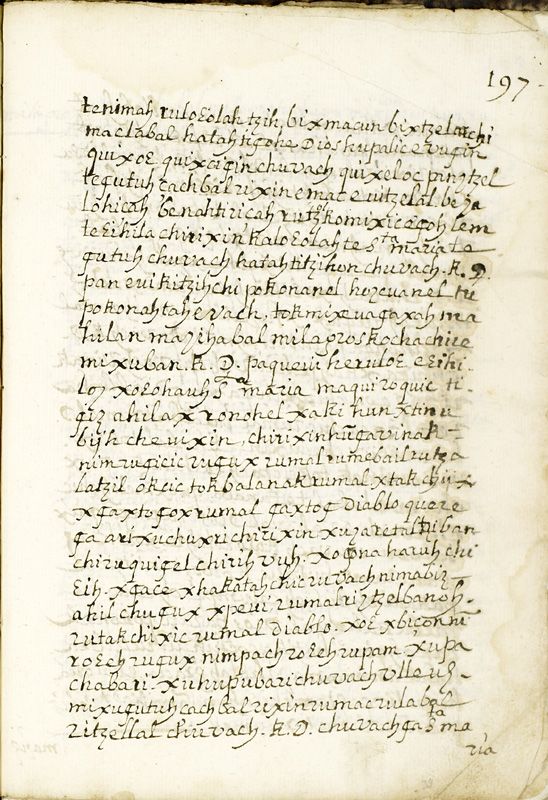 197
tenimah ruloεolah tzih, bixmacun bixtzelachi
maclabal hatah tigohe Dios hupalic evugin
quixoε quixcigin chuvach quixeloc pinytzel
tegutuh cachbal rixin emac evitzelal beya
lohicah benahtiricah rutzkomixicegoh lem
teεihila chirixin kaloεolah te Sta maria te
gutuh chuvach hatah titzihon chuvach. K. D.
pan evikitzihchi pokonanel hoycvanel tu
pokonahtah evach, tok mixevagaxah ma
hilan mayihabal mila proskochachire
mixuban. K. D. paqueui heruloε eεihi.
loy xoεohauh Sa maria maquiroquic ti
giz ahilax ronohel xaki hun xtinu
bijh chevixin, chirixin hugavinak -
nimrugicic rugux rumal rumebail rutza
latzil okcic tok balanak rumal xtakchijx
xgaxtogox rumal gaxtog Diablo quere
ga ari xuchuxri chirixin xuyaretal tiban
chiruquigel chirih vuh. xogna haruh chi
εih. xgace xhakatah chic ruvach nimabiz
ahil chugux xpeui rumal riytzelbanoh.
rutakchixic rumal Diablo. xoε xbiconu
roεeh rugux nimpach roεeh rupam xupa
chabari. xuhupubari chuvach vlleuh.
mixugutuh cachbal rixin rumac rulabal
ritzellal chuvach. K. D. chuvach ga Sa ma
ria